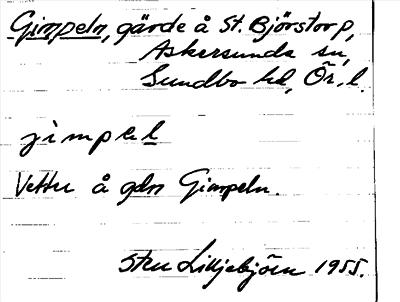 Gimpeln, gärde å St. Björstorp,
Askersunds sn,
Sundbo hd, Ör. l.
jimpel
Vetter å gdn Gimpeln.
Sten Lilljebjörn 1955.